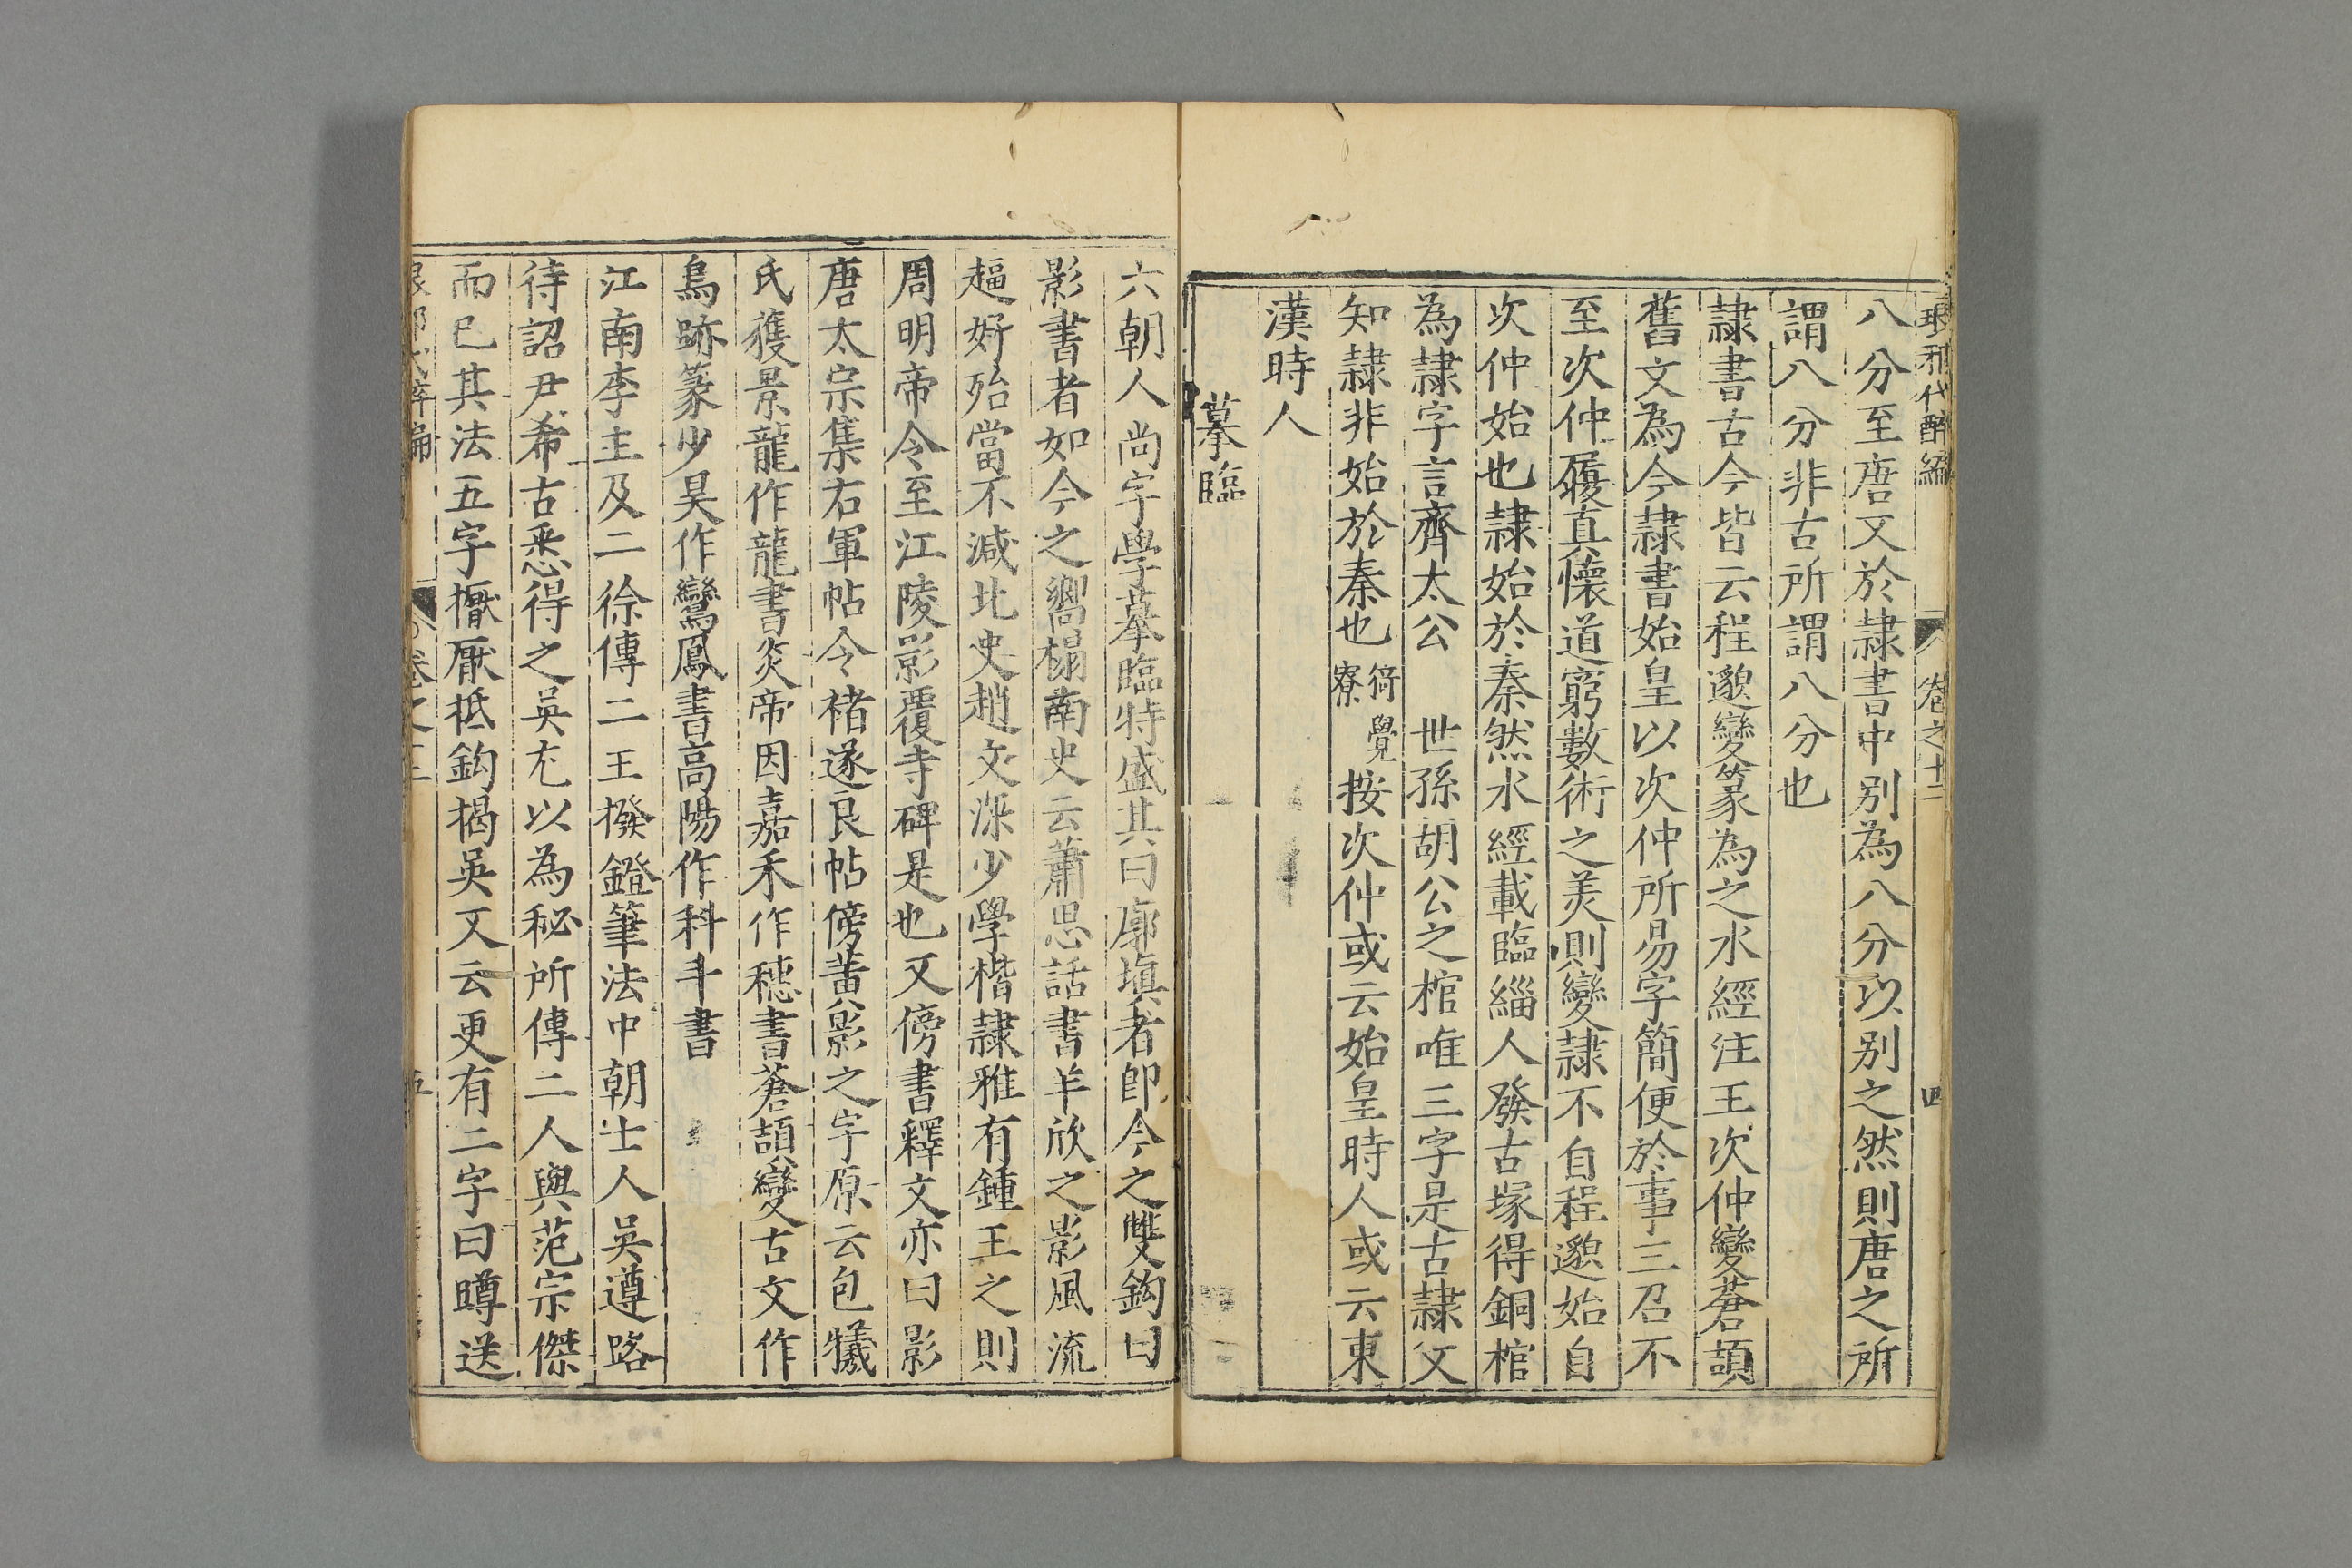 琅邪代醉編 卷之十二 四
八分至唐又於隸書中別為八分以別之然則唐之所
謂八分非古所謂八分也
隸書古今皆云程邈變篆為之水經注王次仲變蒼頡
舊文為今隸書始皇以次仲所易字簡便於事三召不
至次仲履真懷道窮數術之美則變隸不自程邈始自
次仲始也隸始於秦然水經載臨緇人發古塚得銅棺
為隸字言齊太公 世孫胡公之棺唯三字是古隸文
知隸非始於秦也猗覺寮按次仲或云始皇時人或云東
漢時人
摹臨
六朝人尚字學摹臨特盛其曰廓塡者卽今之雙鈎曰
影書者如今之嚮榻南史云蕭思話書羊欣之影風流
趨好殆當不減北史趙文深少學楷隸雅有鍾王之則
周明帝令至江陵影覆寺碑是也又傍書釋文亦曰影
唐太宗集右軍帖令褚遂良帖傍黃影之字原云包犧
氏獲景龍作龍書炎帝因嘉禾作穗書蒼頡變古文作
鳥跡篆少昊作鸞鳳書高陽作科斗書
江南李主及二徐傳二王撥鐙筆法中朝士人吳遵路
待詔尹希古悉得之吳尢以為秘所傳二人與范宗傑
而已其法五字擫厭抵鈎揭吳又云更有二字曰蹲送
卷之十二 五